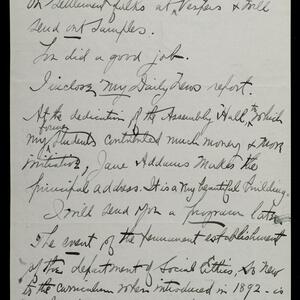 on settlement folks at Vespers & will
send out samples.
You did a good job.
I inclose my Daily News report.
At the dedication of the Assembly Hall, to which
my former students contributed much money & more
initiative, Jane Addams makes the
principal address. It is a very beautiful building.
I will send you a program later.
The event of the permanent establishment
of the department of Social Ethics, so new
to the curriculum when introduced in 1892 - is